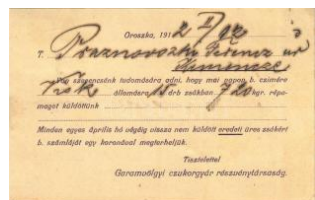 Oroszka, 1912 II/92
T. Praznovszky Ferencz úr
Hag szavesnek tudomására adni, hogy mai napon b. czimére
állomásra 15 drb zsákban 720 kgr. répa-
magot küldöttünk
Minden egyes április hó végéig vissza nem küldött eredeti üres zsákért
b. számláját egy koronával megterheljük.
Tisztelettel
Garamvölgyi czukorgyár részvénytársaság.